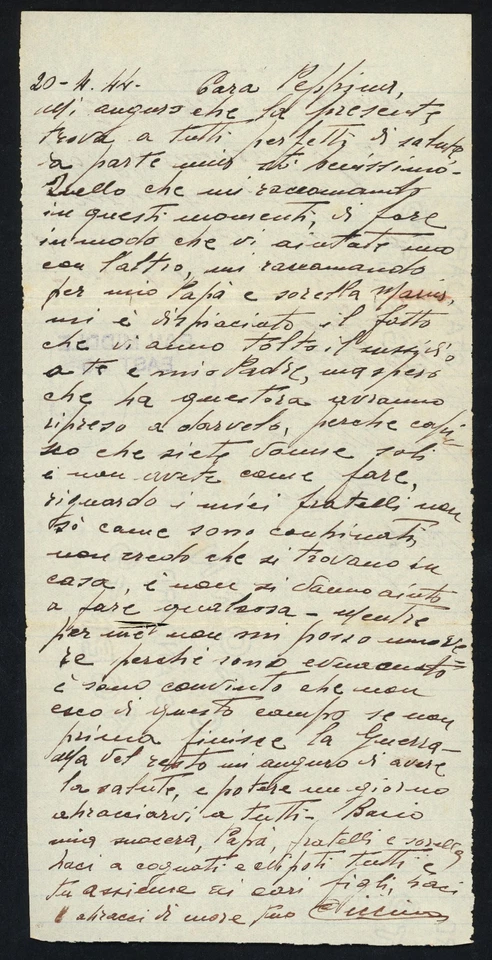 20-4.44- Cara Peppina,
Mi auguro che la presente
trova a tutti perfetti di salute,
da parte mia stò benissimo-
Quello che mi raccomando
in questi momenti, di fare
in modo che vi aiutate uno
con l'altro, mi raccomando
per mio Papà e sorella Maria,
mi è dispiaciuto il fatto
che vi anno tolto il sussidio
a te e mio Padre, ma spero
che ha quest'ora avranno
ripreso a darvelo, perche capi-
sco che siete donne soli
e non avete come fare,
riguardo i miei fratelli non
sò come sono conbinati,
non credo che si trovano in
casa, e non si danno aiuto
a fare qualcosa - Mentre
per me non mi posso muove
re perchè sono
e sono convinto che non
esco di questo campo se non
prima finisce la Guerra-
Ma del resto mi auguro di avere
la salute, e potere un giorno
abracciarvi a tutti- Bacio
mia suocera, Papà, fratelli e sorella
baci a cognati e nipoti tutti e
tu assieme ai cari figli, baci
e abracci di more tuo